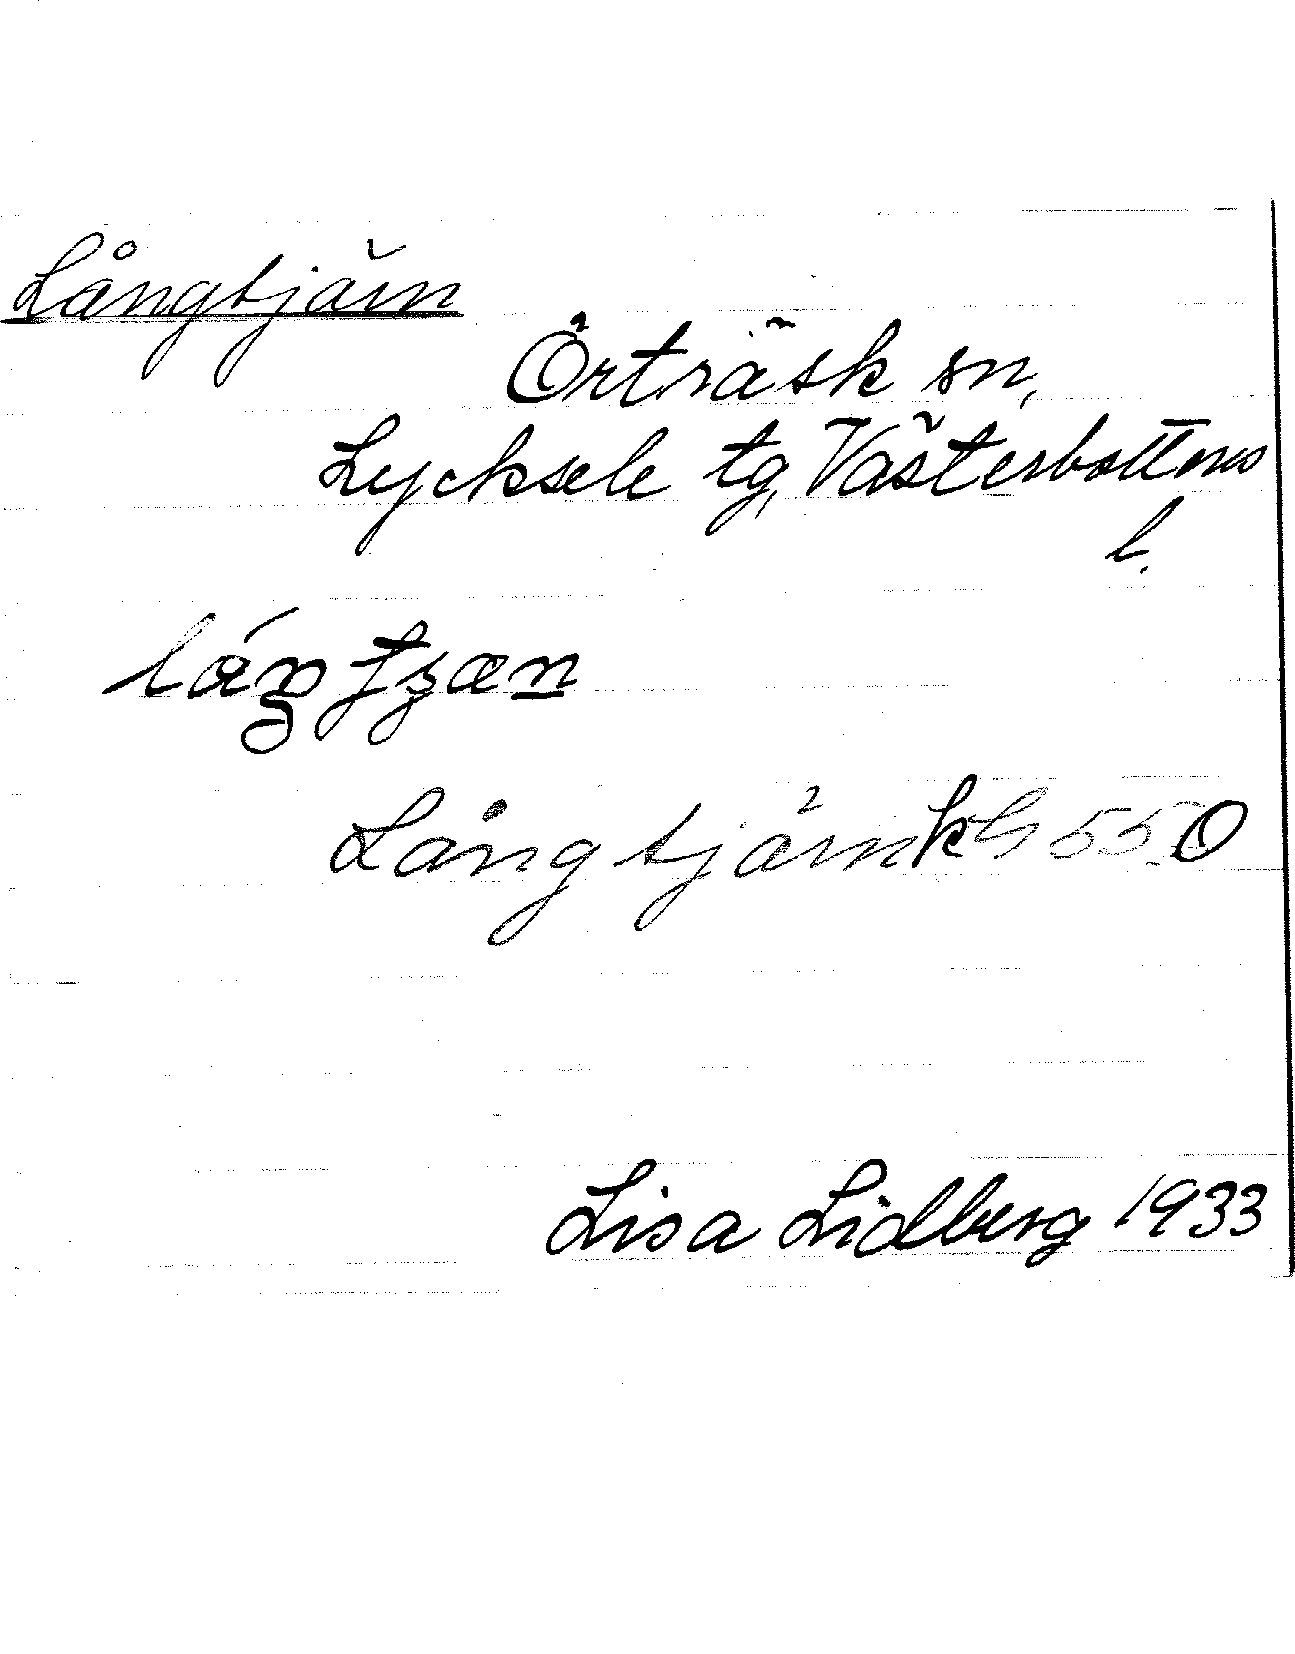 Långtjärn
Örträsk sn,
Lycksele tg, Västerbottens
l.
Långtjärn kb 550
Lisa Lidberg 1933